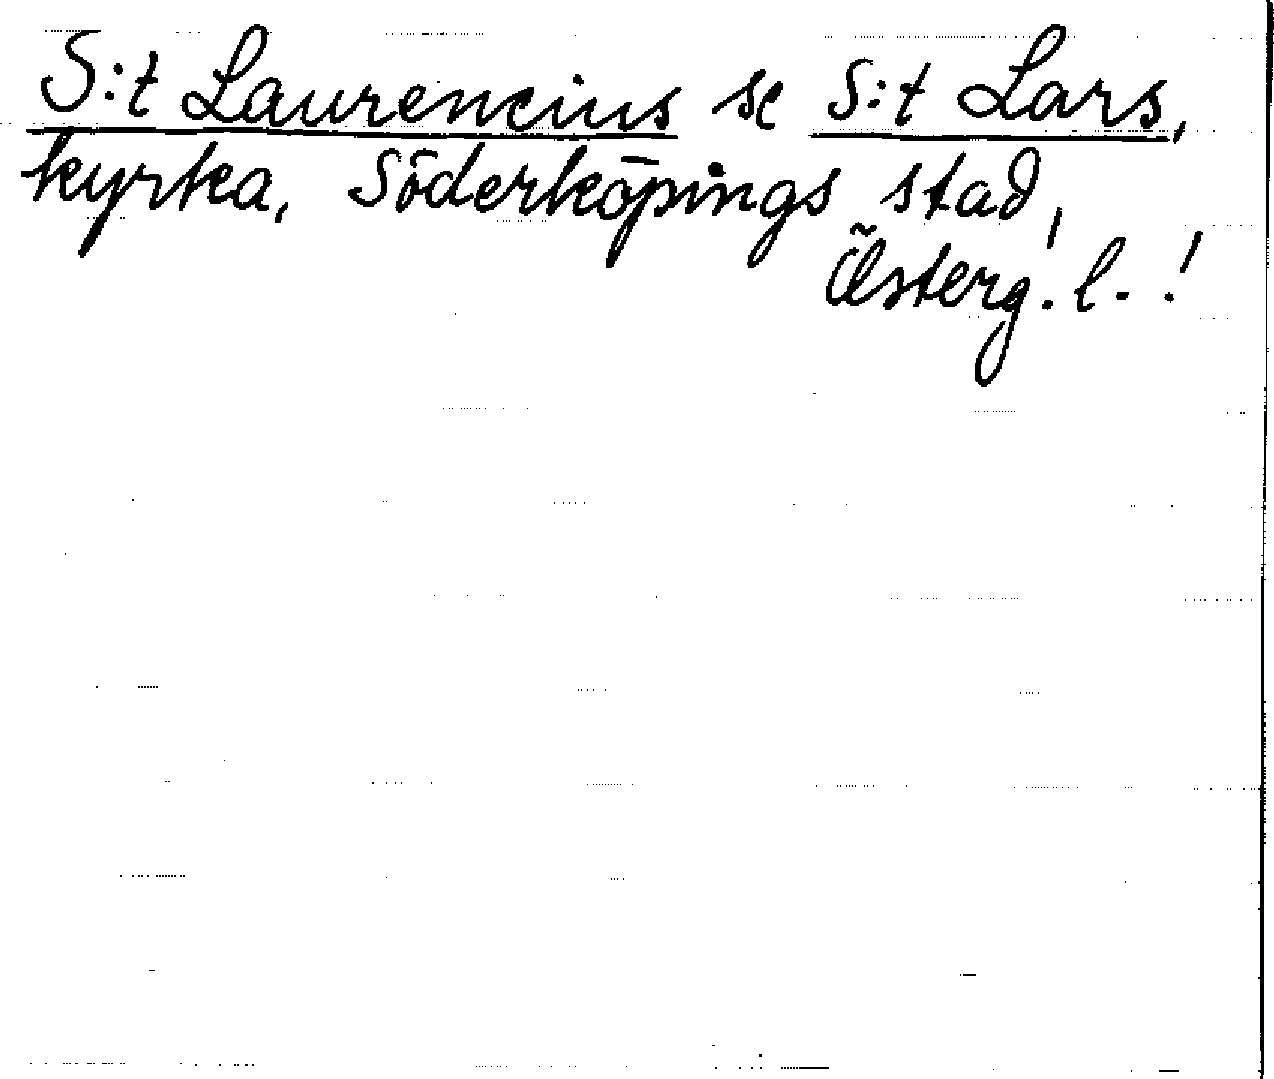 S:t Laurencius se S:t Lars,
kyrka, Söderköpings stad,
Österg. l. !